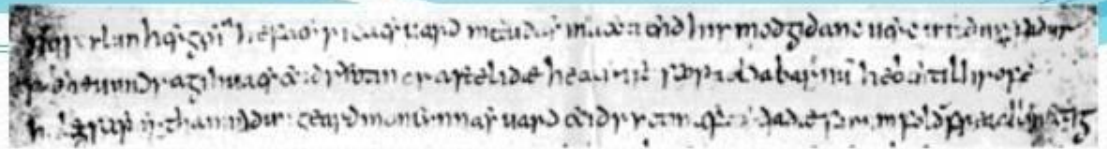 scylun hergan hefaenricaes uard metudæs maecti end his modgidanc uerc uuldurfadur
he uundra gihuaes eci dryctin or astelidæ he aerist scop aelda barnu heben til hrofe
scepen tha middungeard moncynnæs uard eci dryctin æfter tiadæ firum foldu